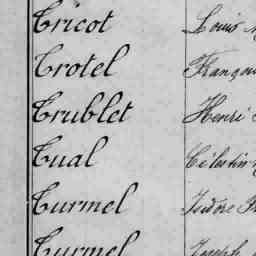 Tricot Louis
Trotel François
Trublet Henri
Tual Célestin
Turmel Isidore
Turmel Joseph